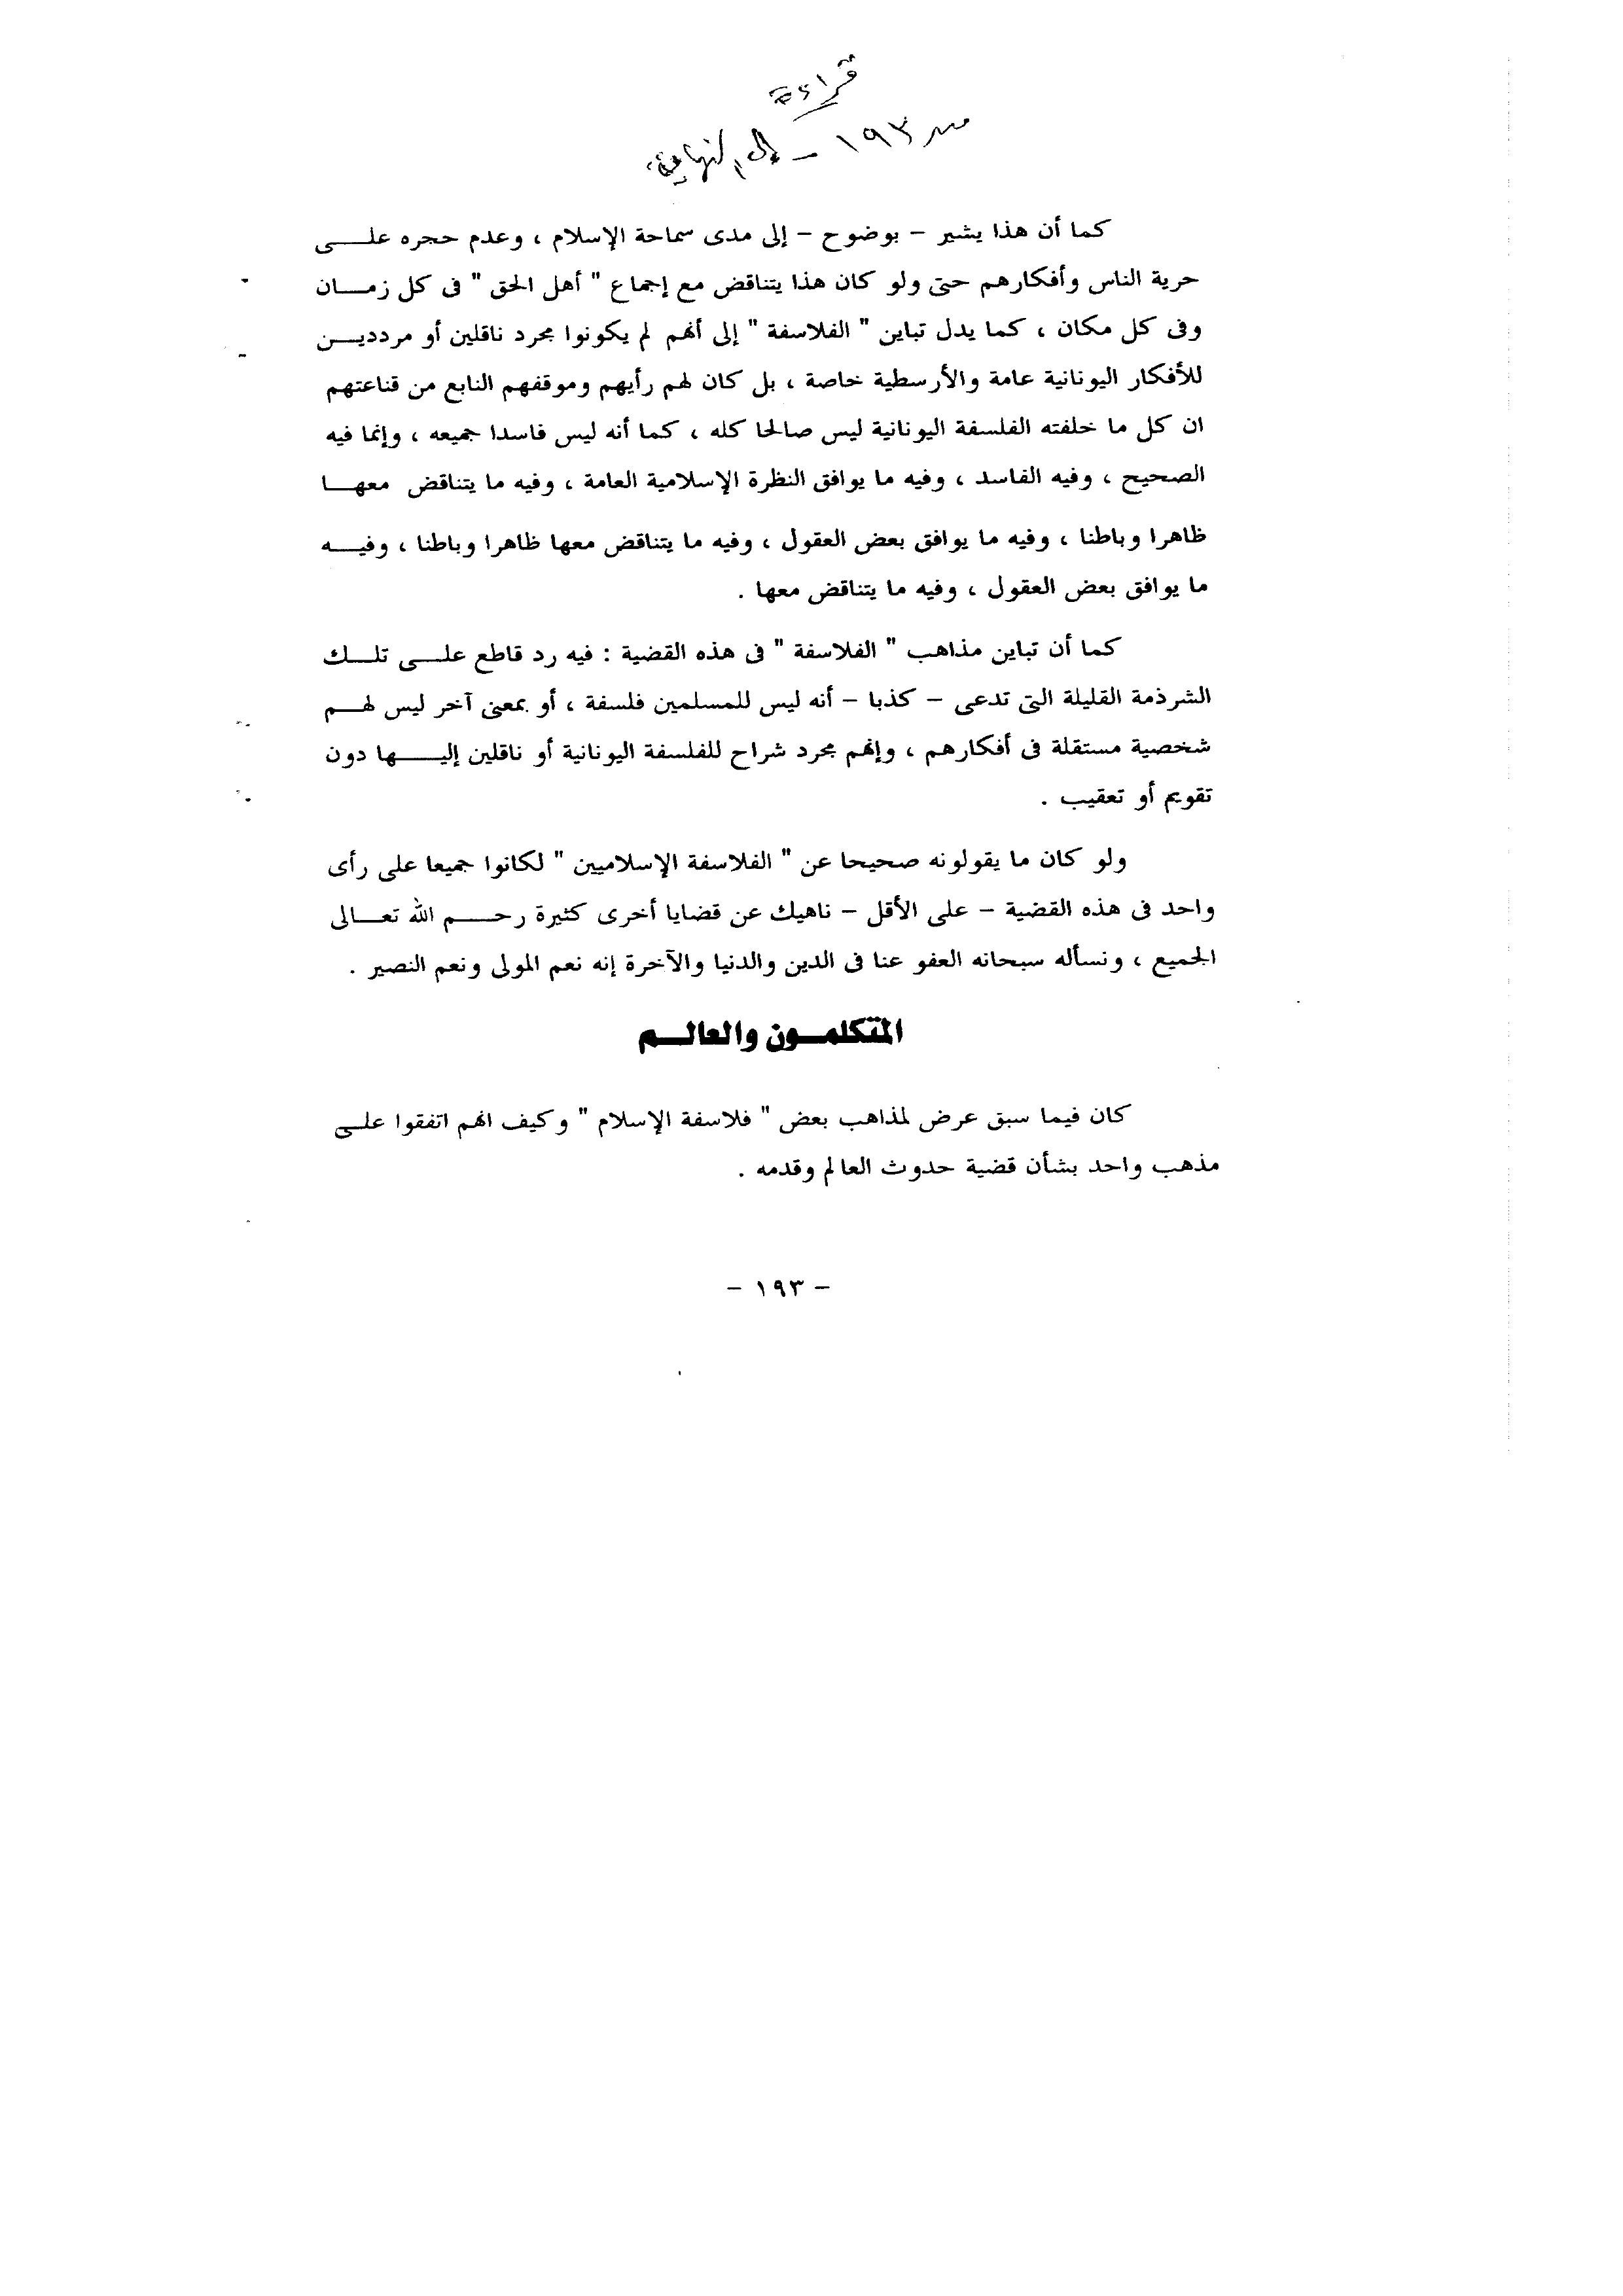 قراءة
من ١٩٣ – إلى النهاية
كما أن هذا يشير – بوضوح – إلى مدى سماحة الإسلام ، وعدم حجره على
حرية الناس وأفكارهم حتى ولو كان هذا يتناقض مع إجماع " أهل الحق " فى كل زمان
وفى كل مكان ، كما يدل تباين " الفلاسفة " إلى أنهم لم يكونوا مجرد ناقلين أو مرددين
للأفكار اليونانية عامة والأرسطية خاصة ، بل كان لهم رأيهم وموقفهم النابع من قناعتهم
ان كل ما خلفته الفلسفة اليونانية ليس صالحا كله ، كما أنه ليس فاسدا جميعه ، وإنما فيه
الصحيح ، وفيه الفاسد ، وفيه ما يوافق النظرة الإسلامية العامة ، وفيه ما يتناقض معها
ظاهرا وباطنا ، وفيه ما يوافق بعض العقول ، وفيه ما يتناقض معها ظاهرا وباطنا ، وفيه
ما يوافق بعض العقول ، وفيه ما يتناقض معها .
كما أن تباين مذاهب " الفلاسفة " فى هذه القضية : فيه رد قاطع على تلك
الشرذمة القليلة التى تدعى – كذبا – أنه ليس للمسلمين فلسفة ، أو بمعنى آخر ليس لهم
شخصية مستقلة فى أفكارهم ، وإنهم مجرد شراح للفلسفة اليونانية أو ناقلين إليها دون
تقويم أو تعقيب .
ولو كان ما يقولونه صحيحا عن " الفلاسفة الإسلاميين " لكانوا جميعا على رأى
واحد فى هذه القضية – على الأقل – ناهيك عن قضايا أخرى كثيرة رحم الله تعالى
الجميع ، ونسأله سبحانه العفو عنا فى الدين والدنيا والآخرة إنه نعم المولى ونعم النصير .
المتكلمون والعالم
كان فيما سبق عرض لمذاهب بعض " فلاسفة الإسلام " وكيف انهم اتفقوا على
مذهب واحد بشأن قضية حدوث العالم وقدمه .
– ١٩٣ –